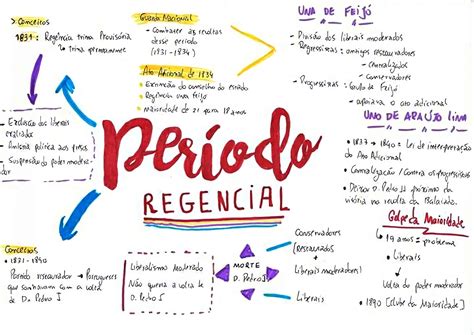 Conceitos
1831: Regência trina Provisória
↳ trina permanente
• Exclusão dos liberais
exaltados
• Anistia política aos presos
• Suspensão do poder moderador
Guarda Nacional
- Combater as revoltas
desse período
(1831-1834)
Ato Adicional de 1834
• Extinção do conselho do estado
• Regência una Feijó
• Maioridade de 21 para 18 anos
UNA DE FEIJÓ
- Divisão dos liberais moderados
- Regressistas: antigos restauradores
→ Centralizados
→ Conservadores
- Progressistas: Grupo de Feijó
→ apoiava o ato adicional
UNO DE ARAÚJO LIMA
• 1837 → 1840 = Lei de interpretação
do Ato Adicional
• Centralização / Contra os progressistas
• Deixou D. Pedro II próximo da
vitória na revolta da Balaiada.
Período
REGENCIAL
Golpe da Maioridade
↳ 14 anos = problema
↳ Liberais
↓
Volta do poder moderador
↳ 1840 [Clube da Maioridade]
Conceitos
• 1831-1840
Partido restaurador → Portugueses
que sonhavam com a volta
de D. Pedro I
Liberalismo moderado
Não queria a volta de
D. Pedro I
MORTE
D. Pedro I
Conservadores
(Restaurados
+
Liberais moderadores)
→ Liberais